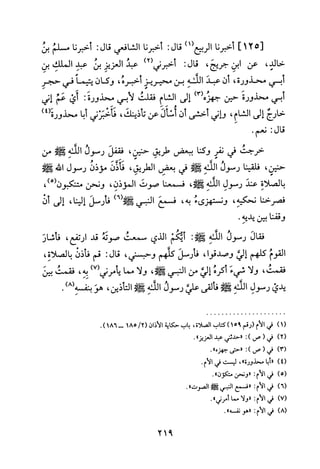 [١٢٥] أخبرنا الربيع(١) قال: أخبرنا الشافعي قال: أخبرنا مسلمُ بنُ
خالدٍ، عن ابنِ جريجٍ، قال: أخبرني(٢) عبدُ العزيزِ بنُ عبدِ الملكِ بنِ
أبي محذورةَ، أن عبدَ اللَّهِ بن محيريزٍ أخبرهُ، وكان يتيماً في حجرِ
أبي محذورةَ حين جهزَّه(٣) إلى الشامِ فقلتُ لأبي محذورةَ: أيْ عَمِّ إني
خارجٌ إلى الشامِ، وإني أخشى أن أُسْأَلَ عن تأذينِكَ، فَأَخْبَرْني أبا محذورة(٤)
قال: نعم.
خرجتُ في نفرٍ وكنا ببعضِ طريقِ حنينٍ، فقفلَ رسولُ اللَّهِ ﷺ من
حنينٍ، فلقينا رسولُ اللَّهِ ﷺ في بعضِ الطريقِ، فَأَذَّنَ مؤذنُ رسولِ الله ﷺ
بالصلاةِ عندَ رسولِ اللَّهِ ﷺ، فسمعنا صوتَ المؤذنِ، ونحن متنكبون(٥)،
فصرخنا نحكيهِ، ونستهزىءُ به، فسمعَ النبي ﷺ(٦) فأرسلَ إلينا، إلى أنْ
وقفنا بين يديهِ.
فقالَ رسولُ اللَّهِ ﷺ: أيُّكُمْ الذي سمعتُ صوتَهُ قد ارتفعَ، فأشارَ
القومُ كلهم إليَّ وصدقوا، فأرسلَ كلَّهم وحبسني، قال: قم فأذنْ بالصلاةِ،
فقمتُ، ولا شيءَ أكرهُ إليَّ من النبي ﷺ، ولا مما يأمرني(٧) به، فقمتُ بينَ
يديْ رسولِ اللَّهِ ﷺ فألقى عليَّ رسولُ اللَّهِ ﷺ التأذين، هوَ بنفسهِ(٨).
(١) في الأم (رقم ١٥٩) كتاب الصلاة، باب حكاية الأذان (٢/ ١٨٥ ــ ١٨٦).
(٢) في (ص): «حدثني عبد العزيز».
(٣) في (ص): «حتى جهزه».
(٤) «أبا محذورة»، ليست في الأم.
(٥) في الأم: «ونحن متكؤن».
(٦) في الأم: «فسمع النبي ﷺ الصوت».
(٧) في الأم: «ولا مما أمرني».
(٨) في الأم: «هو نفسه».
٢١٩